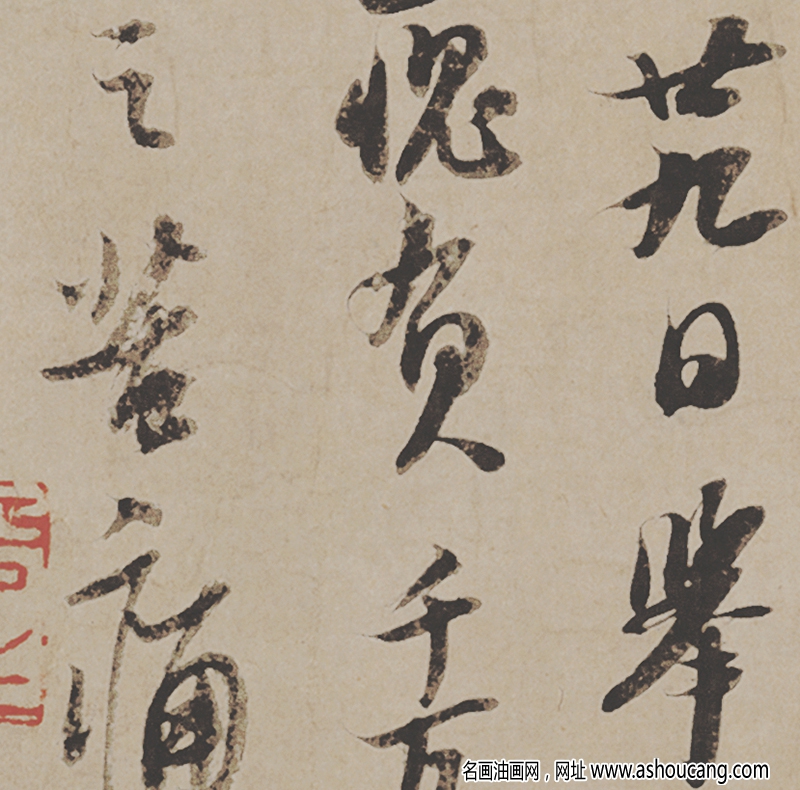 廿九日舉
愧負千万
之苦痛
名画油画网，网址 www.ashoucang.com